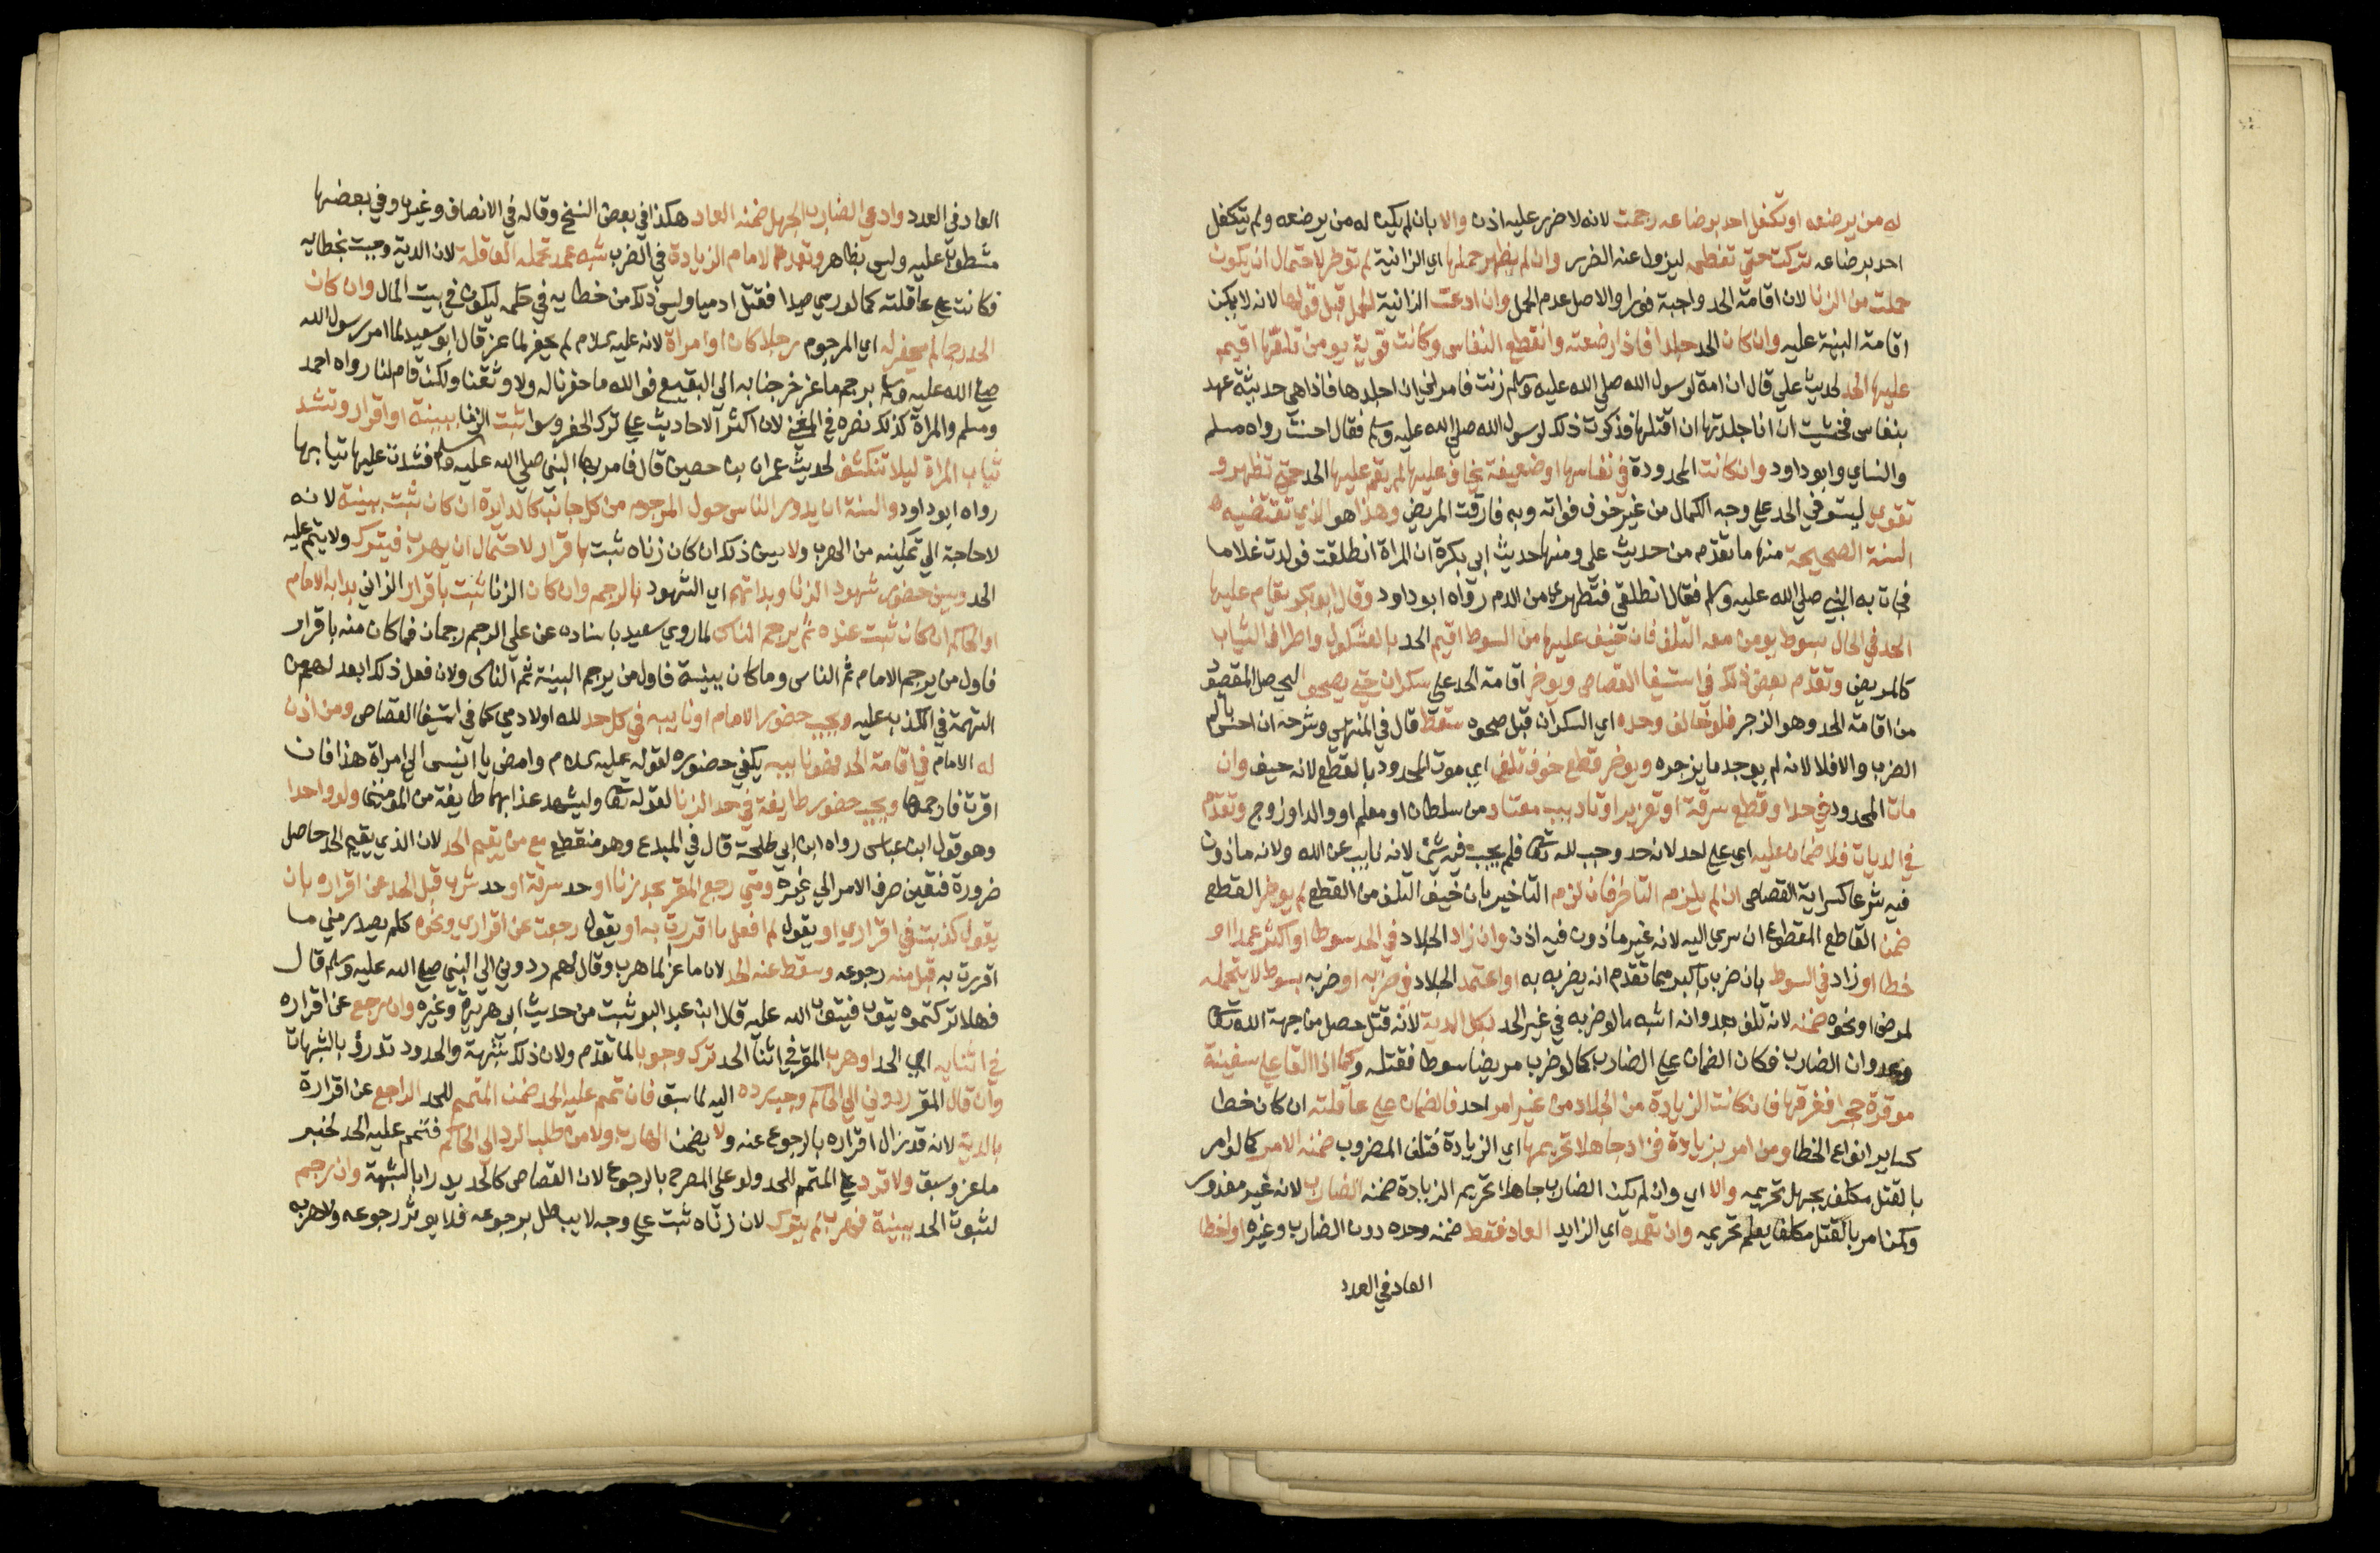 له من يرضعه او تكفل احد برضاعه رجمت لانه لا ضرر عليه اذن والا بان لم يكن له من يرضعه ولم يتكفل
احد برضاعه تركت حتى تفطمه ليزول عنه الضرر وان لم يظهر حملها اي الزانية لم توخر لاحتمال ان يكون
حملت من الزنا لان اقامة الحد واجبة فورا والاصل عدم الحمل وان ادعت الزانية الحمل قبل قولها لانه لا يمكن
اقامة البينة عليه وان كان الحد جلدا فاذا ارضعته وانقطع النفاس وكانت قوية يومن تلفها اقيم
عليها الحد لحديث علي قال ان امة لرسول الله صلي الله عليه وسلم زنت فامرني ان اجلدها فاذا هي حديثة عهد
بنفاس فخشيت ان انا جلدتها ان اقتلها فذكرت ذلك لرسول الله صلي الله عليه وسلم فقال احسنت رواه مسلم
والنساي وابو داود وان كانت المحدودة في نفاسها او ضعيفة يخاف عليها لم يقم عليها الحد حتى تطهر و
تقوي ليستوفي الحد علي وجه الكمال من غير خوف فواته وبه فارقت المريض وهذا هو الذي تقتضيه
السنة الصحيحة منها ما تقدم من حديث علي ومنها حديث ابي بكرة ان المراة انطلقت فولدت غلاما
فجات به النبي صلي الله عليه وسلم فقال انطلقي فتطهري من الدم رواه ابو داود وقال ابو بكر يقام عليها
الحد في الحال بسوط يومن معه التلف فان خيف عليها من السوط اقيم الحد بالعثكول واطراف الثياب
كالمريض وتقدم بعض ذلك في استيفا القصاص ويوخر اقامة الحد علي سكران حتى يصحو ليحصل المقصود
من اقامة الحد وهو الزجر فلو خالف وحده اي السكران قبل صحوه سقط قال في المنتهي وشرحه ان احس بالم
الضرب والا فلا لانه لم يوجد ما يزجره ويوخر قطع خوف تلف اي موت المحدود بالقطع لانه حيف وان
مات المحدود في حد او قطع سرقة او تعزير او تاديب معتاد من سلطان او معلم او والد او زوج وتقدم
في الديات فلا ضمان عليه اي علي احد لانه حد وجب لله تعالى فلم يجب فيه شي لانه نايب عن الله ولانه ماذون
فيه شرعا كسراية القصاص ان لم يلزم التاخير فان لزم التاخير بان خيف التلف من القطع لم يوخر القطع
ضمن القاطع المقطوع ان سري اليه لانه غير ماذون فيه اذن وان زاد الجلاد في الحد سوطا او اكثر عمدا او
خطا او زاد في السوط بان ضرب باكبر مما تقدم انه يضربه به او اعتمد الجلاد في ضربه او ضربه بسوط لا يتحمله
لمرض او نحوه ضمنه لانه تلف بعدوانه اشبه ما لو ضربه في غير الحد بكل الدية لانه قتل حصل من جهة الله تعالى
وعدوان الضارب فكان الضمان علي الضارب كما لو ضرب مريضا سوطا فقتله وكما اذا القا علي سفينة
موقرة حجرا فغرقها فان كانت الزيادة من الجلاد من غير امر احد فالضمان علي عاقلته ان كان خطا
كساير انواع الخطا ومن امر بزيادة فزاد جاهلا تحريمها اي الزيادة فتلف المضروب ضمنه الامر كما لو امر
بالقتل مكلف يجهل تحريمه والا اي وان لم يكن الضارب جاهلا تحريم الزيادة ضمنه الضارب لانه غير معذور
وكمن امر بالقتل مكلفا يعلم تحريمه وان تعمده اي الزايد العاد فقط ضمنه وحده دون الضارب وغيره او اخطا
العاد في العدد
العاد في العدد وادعي الضارب الجهل ضمنه العاد هكذا في بعض النسخ وقاله في الانصاف وغيره وفي بعضها
مشطوب عليه وليس بظاهر وتعمد الامام الزيادة في الضرب شبه عمد تحمله العاقلة لان الدية وجبت بخطايه
فكانت علي عاقلته كما لو رمي صيدا فقتل ادميا وليس ذلك من خطايه في حكمه ليكون في بيت المال وان كان
الحد رجما لم يحفر له اي المرجوم رجلا كان او امراة لانه عليه السلام لم يحفر لماعز قال ابو سعيد لما امر رسول الله
صلي الله عليه وسلم برجم ماعز خرجنا به الي البقيع فوالله ما حفرنا له ولا وثقنا ولكن قام لنا رواه احمد
ومسلم والمراة كذلك نصره في المغني لان اكثر الاحاديث علي ترك الحفر وسوا ثبت الزنا ببينة او اقرار وتشد
ثياب المراة ليلا تنكشف لحديث عمران بن حصين قال فامر بها النبي صلي الله عليه وسلم فشدت عليها ثيابها
رواه ابو داود والسنة ان يدور الناس حول المرجوم من كل جانب كالدايرة ان كان ثبت ببينة لانه
لا حاجة الي تمكينه من الهرب ولا يسن ذلك ان كان زناه ثبت باقرار لاحتمال ان يهرب فيترك ولا يتم عليه
الحد ويسن حضور شهود الزنا وبداتهم اي الشهود بالرجم وان كان الزنا ثبت باقرار الزاني بدا به الامام
او الحاكم ان كان ثبت عنده ثم يرجم الناس لما روي سعيد باسناده عن علي الرجم رجمان فما كان منه باقرار
فاول من يرجم الامام ثم الناس وما كان ببينة فاول من يرجم البينة ثم الناس ولان فعل ذلك ابعد لهم من
التهمة في الكذب عليه ويجب حضور الامام او نايبه في كل حد لله او لادمي كما في استيفا القصاص ومن اذن
له الامام في اقامة الحد فهو نايبه يكفي حضوره لقوله عليه السلام وامض يا انيس الي امراة هذا فان
اقرت فارجمها ويجب حضور طايفة في حد الزنا لقوله تعالى وليشهد عذابهما طايفة من المومنين ولو واحدا
وهو قول ابن عباس رواه ابن ابي طلحة قال في المبدع وهو منقطع مع من يقيم الحد لان الذي يقيم الحد حاصل
ضرورة فتعين صرف الامر الي غيره ومتي رجع المقر بحد زنا او حد سرقة او حد شرب قبل الحد عن اقراره بان
يقول كذبت في اقراري او يقول لم افعل ما اقررت به او يقول رجعت عن اقراري ونحوه كلم يصدر مني ما
اقررت به قبل منه رجوعه وسقط عنه الحد لان ماعزا لما هرب وقال لهم ردوني الي النبي صلي الله عليه وسلم قال
فهلا تركتموه يتوب فيتوب الله عليه قال ابن عبد البر ثبت من حديث ابي هريرة وغيره وان رجع عن اقراره
في اثنايه اي الحد او هرب المقر في اثنا الحد ترك وجوبا لما تقدم ولان ذلك شبهة والحدود تدرؤ بالشبهات
وان قال المقر ردوني الي الحاكم وجب رده اليه لما سبق فان تمم عليه الحد ضمن المتمم للحد الراجع عن اقراره
بالدية لانه قد زال اقراره بالرجوع عنه ولا يضمن الهارب ولا من طلب الرد الي الحاكم فتمم عليه الحد لخبر
ماعز وسبق ولا قود علي المتمم الحد ولو علي المصرح بالرجوع لان القصاص كالحد يدرا بالشبهة وان رجم
لثبوت الحد ببينة فهرب لم يترك لان زناه ثبت علي وجه لا يبطل برجوعه فلا يوثر رجوعه ولا هربه